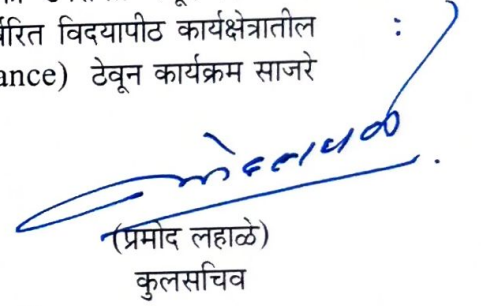 र्वरित विदयापीठ कार्यक्षेत्रातील :
ance) ठेवून कार्यक्रम साजरे
(प्रमोद लहाळे)
कुलसचिव